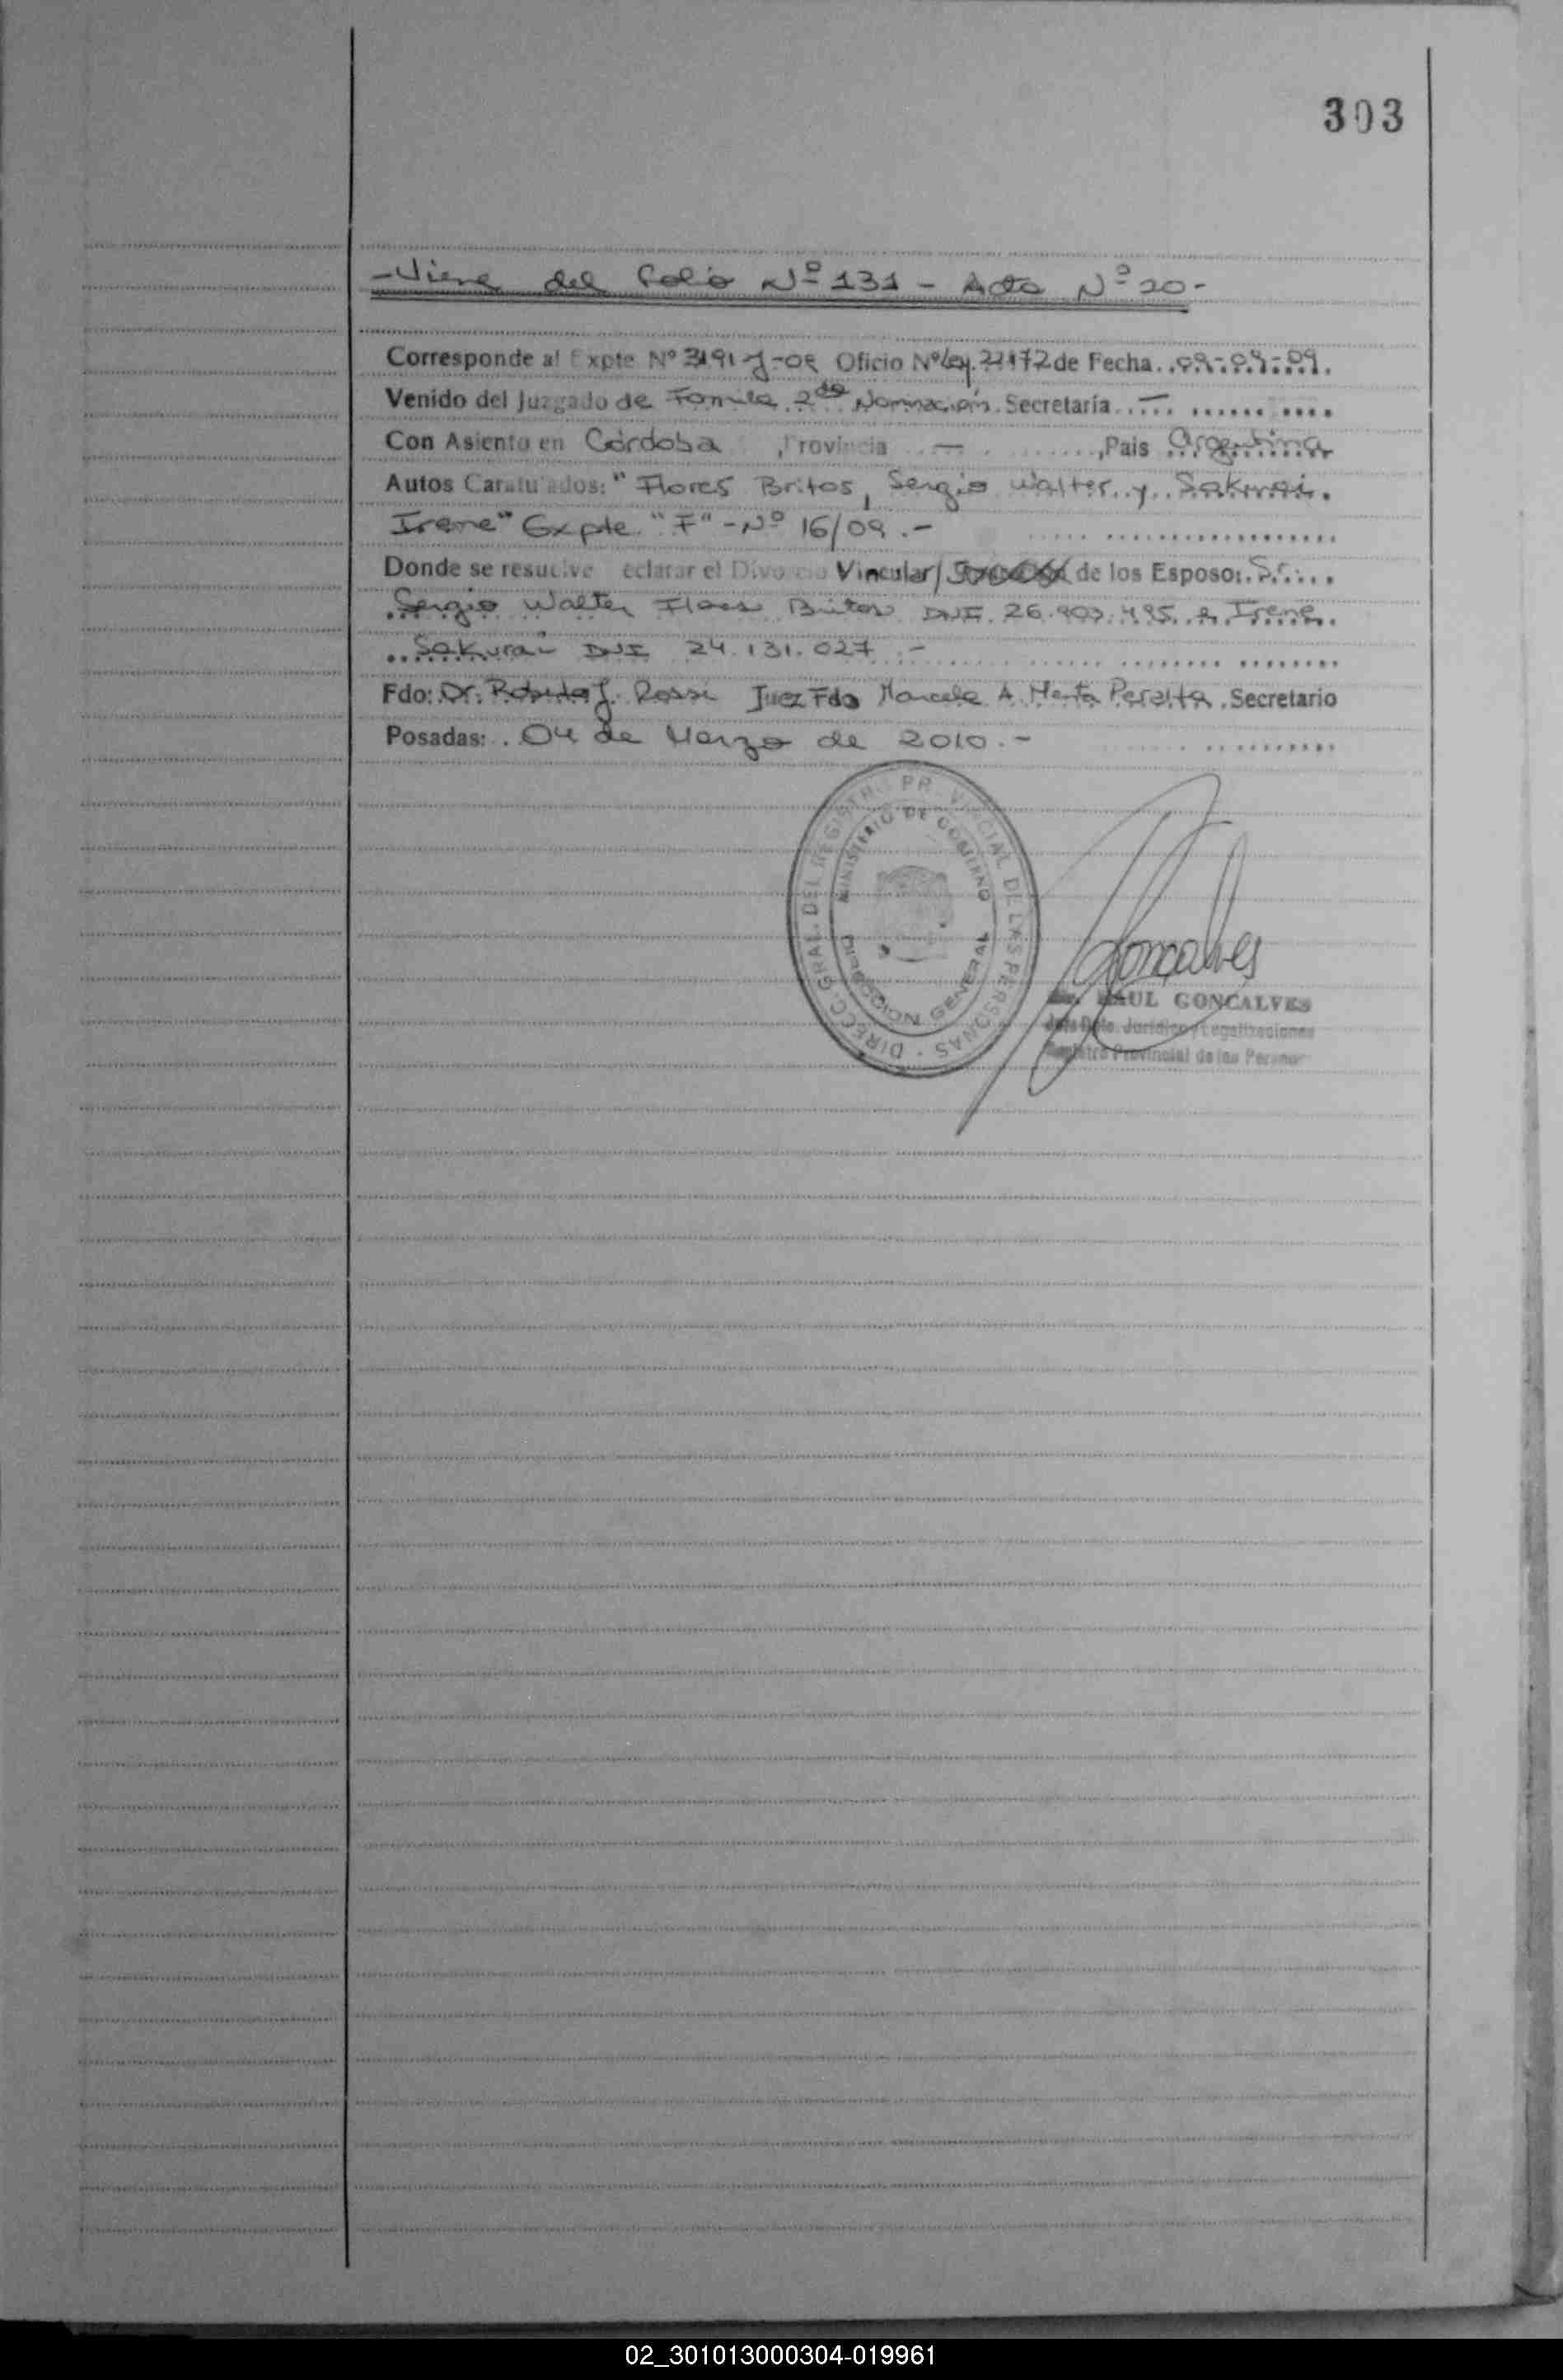 303
-Viene del Folio Nº 131 - Acta Nº 20-
Corresponde al Expte Nº 3191-J-09 Oficio Nº Ley. 22172 de Fecha..09-09-09.
Venido del Juzgado de Familia 2da Nominación. Secretaría...—...
Con Asiento en Córdoba ,Provincia ...—... ,Pais Argentina
Autos Caratulados: "Flores Britos, Sergio Walter y Sakurai.
Irene" Expte "F" - Nº 16/09.-
Donde se resuelve eclarar el Divorcio Vincular/ de los Esposo:.Sr....
Sergio Walter Flores Britos DNI. 26.903.495 e Irene.
Sakurai DNI 24.131.027.-
Fdo: Dr. Roberto J. Rossi Juez Fdo Marcela A. Menta Peralta. Secretario
Posadas: . 04 de Marzo de 2010.-
DIRECC. GRAL. DEL REGISTRO PROVINCIAL DE LAS PERSONAS ·
MINISTERIO DE GOBIERNO
DIRECCION GENERAL
Goncalves
RAUL GONCALVES
Jefe Dpto. Jurídico y Legalizaciones
Registro Provincial de las Person
02_301013000304-019961